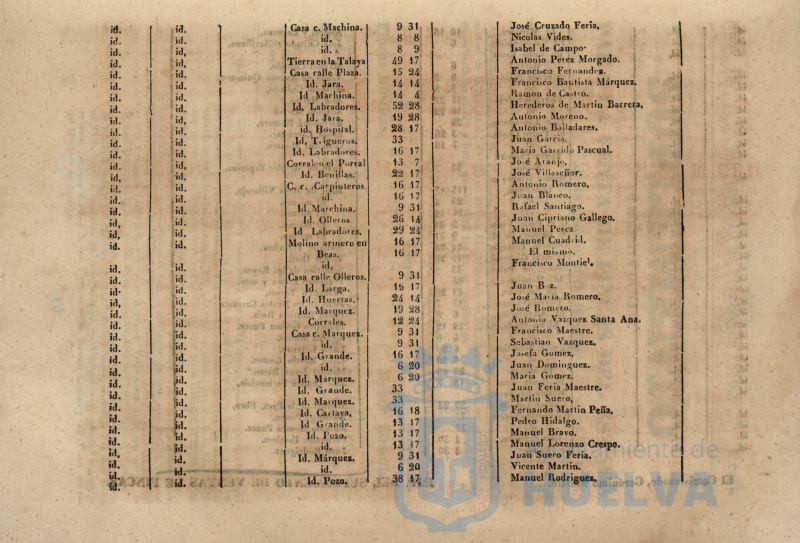 id. id. Casa c. Machina. 9 31 José Cruzado Feria.
id. id. id. 8 8 Nicolas Vides.
id. id. id. 8 9 Isabel de Campo.
id. id, Tierra en la Talaya 49 17 Antonio Perez Morgado.
id. id. Casa calle Plaza. 15 24 Francisco Fernandez.
id. id. Id. Jara. 14 14 Francisco Bautista Márquez.
id. id. Id Machina. 14 4 Ramon de Castro.
id. id. Id. Labradores. 52 28 Herederos de Martin Barrera,
id. id. Id. Jara, 19 28 Antonio Moreno.
id. id. id. Hospital. 28 17 Antonio Balladares.
id. id. Id, Trigueros. 33 Juan Garcia.
id. id. Id. Labradores. 16 17 Maria Garrido Pascual.
id. id. Corral en el Porral 13 7 José Aranjo.
id. id, Id. Benillas. 22 17 José Villaseñor.
id. id. C. c. Carpinteros. 16 17 Antonio Romero.
id. id. id. 16 17 Juan Blanco.
id. id. Id. Marchina. 9 31 Rafael Santiago.
id. id. Id. Olleros 26 14 Juan Cipriano Gallego.
id, id. Id Labradores. 29 24 Manuel Perez
id, id. Molino arinero en 16 17 Manuel Cuadrid.
id. id. Beas. 16 17 El mismo.
id. Francisco Montiel.
id. id. Casa calle Olleros. 9 31
id. id. Id. Larga. 16 17 Juan Boz.
id. id. Id. Huertas. 24 14 José Maria Romero.
id. id. Id. Marquez. 19 28 José Romero.
id. id. Corrales. 12 24 Antonio Vazquez Santa Ana.
id. id. Casa c. Marquez. 9 31 Francisco Maestre.
id. id. id. 9 31 Sebastian Vazquez.
id. id. Id. Grande. 16 17 Josefa Gomez,
id. id. id. 6 20 Juan Dominguez.
id. id. Id. Márquez. 6 20 Maria Gomez.
id. id. Id. Grande. 33 Juan Feria Maestre.
id. id. Id. Marquez. 33 Martin Suero,
id. id. Id. Cartaya, 16 18 Fernando Martin Peña.
id. id. Id Grande. 13 17 Pedro Hidalgo.
id. id. Id. Pozo, 13 17 Manuel Bravo.
id. id. id. 13 17 Manuel Lorenzo Crespo.
id. id. Id. Márquez. 9 31 Juan Suero Feria.
id. id. id. 6 20 Vicente Martin.
id. id. Id. Pozo. 38 17 Manuel Rodriguez,
HUELVA